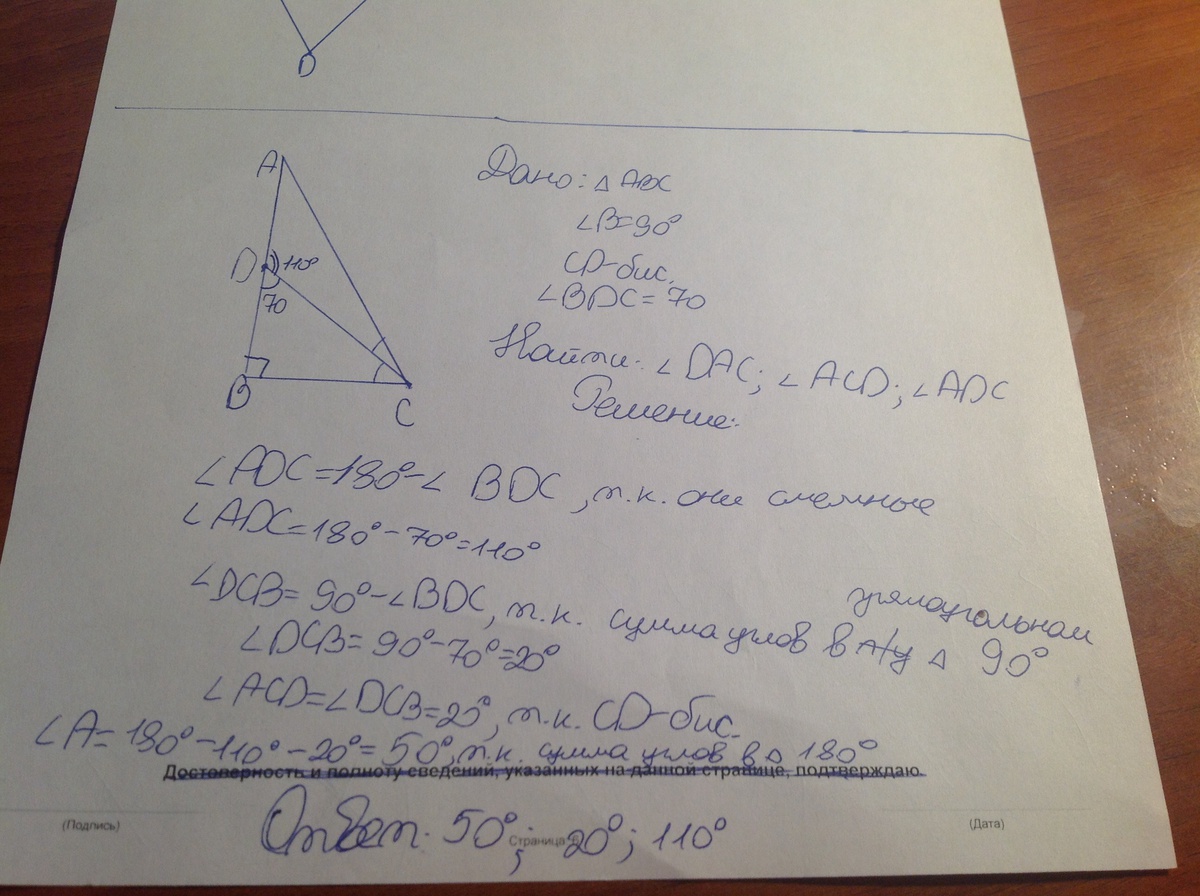 D
A
D 110°
70
B
C
Дано: △ ABC
∠B=90°
CD-бис.
∠BDC= 70
Найти: ∠ DAC; ∠ ACD; ∠ADC
Решение:
∠ADC=180°-∠ BDC, т.к. они смежные
∠ADC=180°-70°=110°
прямоугольном
∠DCB= 90°-∠BDC, т.к. сумма углов в △ 90°
∠DCB= 90°-70°=20°
∠ACD=∠DCB=20°, т.к. CD-бис.
∠A= 180°-110°-20°= 50°, т.к. сумма углов в △ 180°
Достоверность и полноту сведений, указанных на данной странице, подтверждаю.
(Подпись)
Страница
(Дата)
Ответ. 50°; 20°; 110°